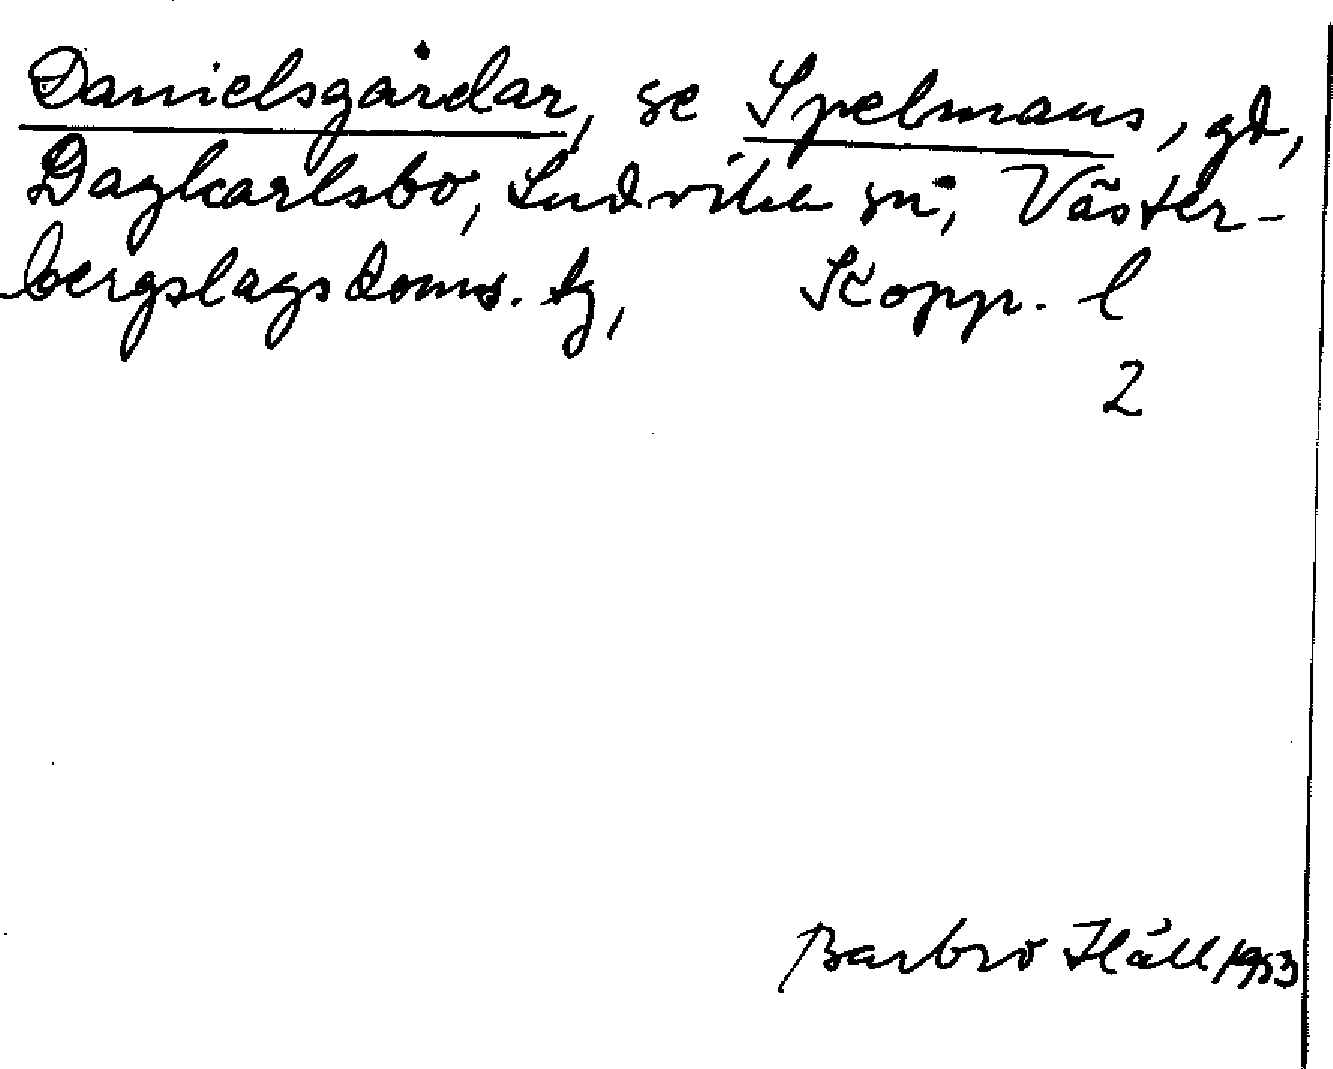 Danielsgårdar, se Spelmans, gd,
Dagkarlsbo, Ludvika sn, Väster-
bergslags doms. tg, Kopp. l
2
Barbro Häll 1953